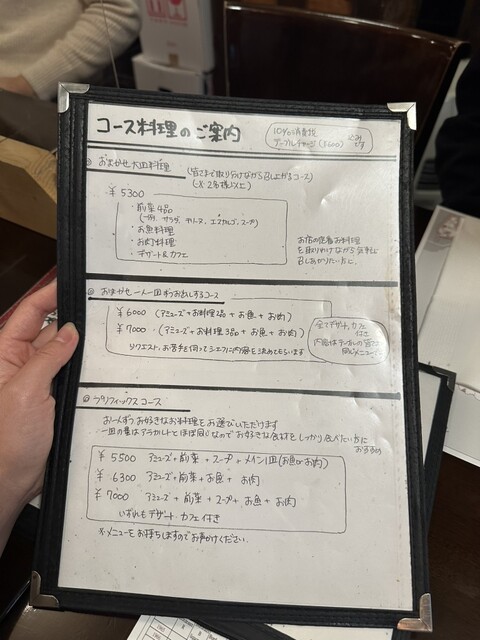 コース料理のご案内
10%の消費税
テーブルチャージ(¥600) 込み
です
◎ おまかせ大皿料理 (皆さまで取り分けながら召し上がるコース)
(※2名様以上)
¥5300
・前菜4品
(一例、サラダ、テリーヌ、エスカルゴ、スープ)
・お魚料理
・お肉料理
・デザート&カフェ
お店の定番お料理
を取り分けながら気軽に
召しあがりたい方に
◎ おまかせ一人一皿ずつお出しするコース
¥6000 (アミューズ+お料理2品+お魚+お肉)
¥7000 (アミューズ+お料理3品+お魚+お肉)
リクエスト、お苦手を伺ってシェフに内容を決めてもらいます
全てデザート、カフェ
付き
内容はテーブルの皆さま
同じメニューで
◎ プリフィックスコース
お一人ずつお好きなお料理をお選びいただけます
一皿の量はアラカルトとほぼ同じなのでお好きな食材をしっかり食べたい方に
おすすめ
¥5500 アミューズ+前菜+スープ+メイン1皿(お魚orお肉)
¥6300 アミューズ+前菜+お魚+お肉
¥7000 アミューズ+前菜+スープ+お魚+お肉
いずれもデザート・カフェ付き
※メニューをお持ちしますのでお声がけください。